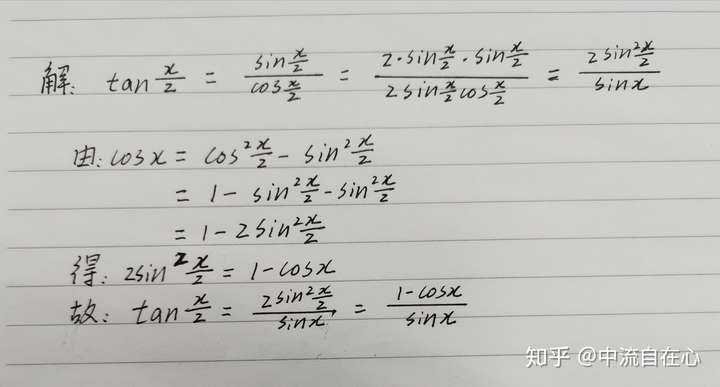 解: tan x/2 = sin x/2 / cos x/2 = 2·sin x/2 · sin x/2 / 2sin x/2 cos x/2 = 2sin² x/2 / sinx
由: cosx = cos² x/2 - sin² x/2
= 1 - sin² x/2 - sin² x/2
= 1 - 2sin² x/2
得: 2sin² x/2 = 1 - cosx
故: tan x/2 = 2sin² x/2 / sinx = 1-cosx / sinx
知乎 @中流自在心